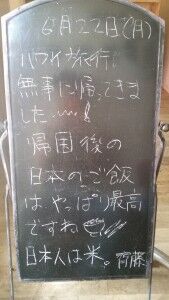 6月22日(月)
ハワイ旅行!
無事に帰ってきま
した……!
帰国後の
日本のご飯
は、やっぱ最高
ですね
日本人は米。齊藤